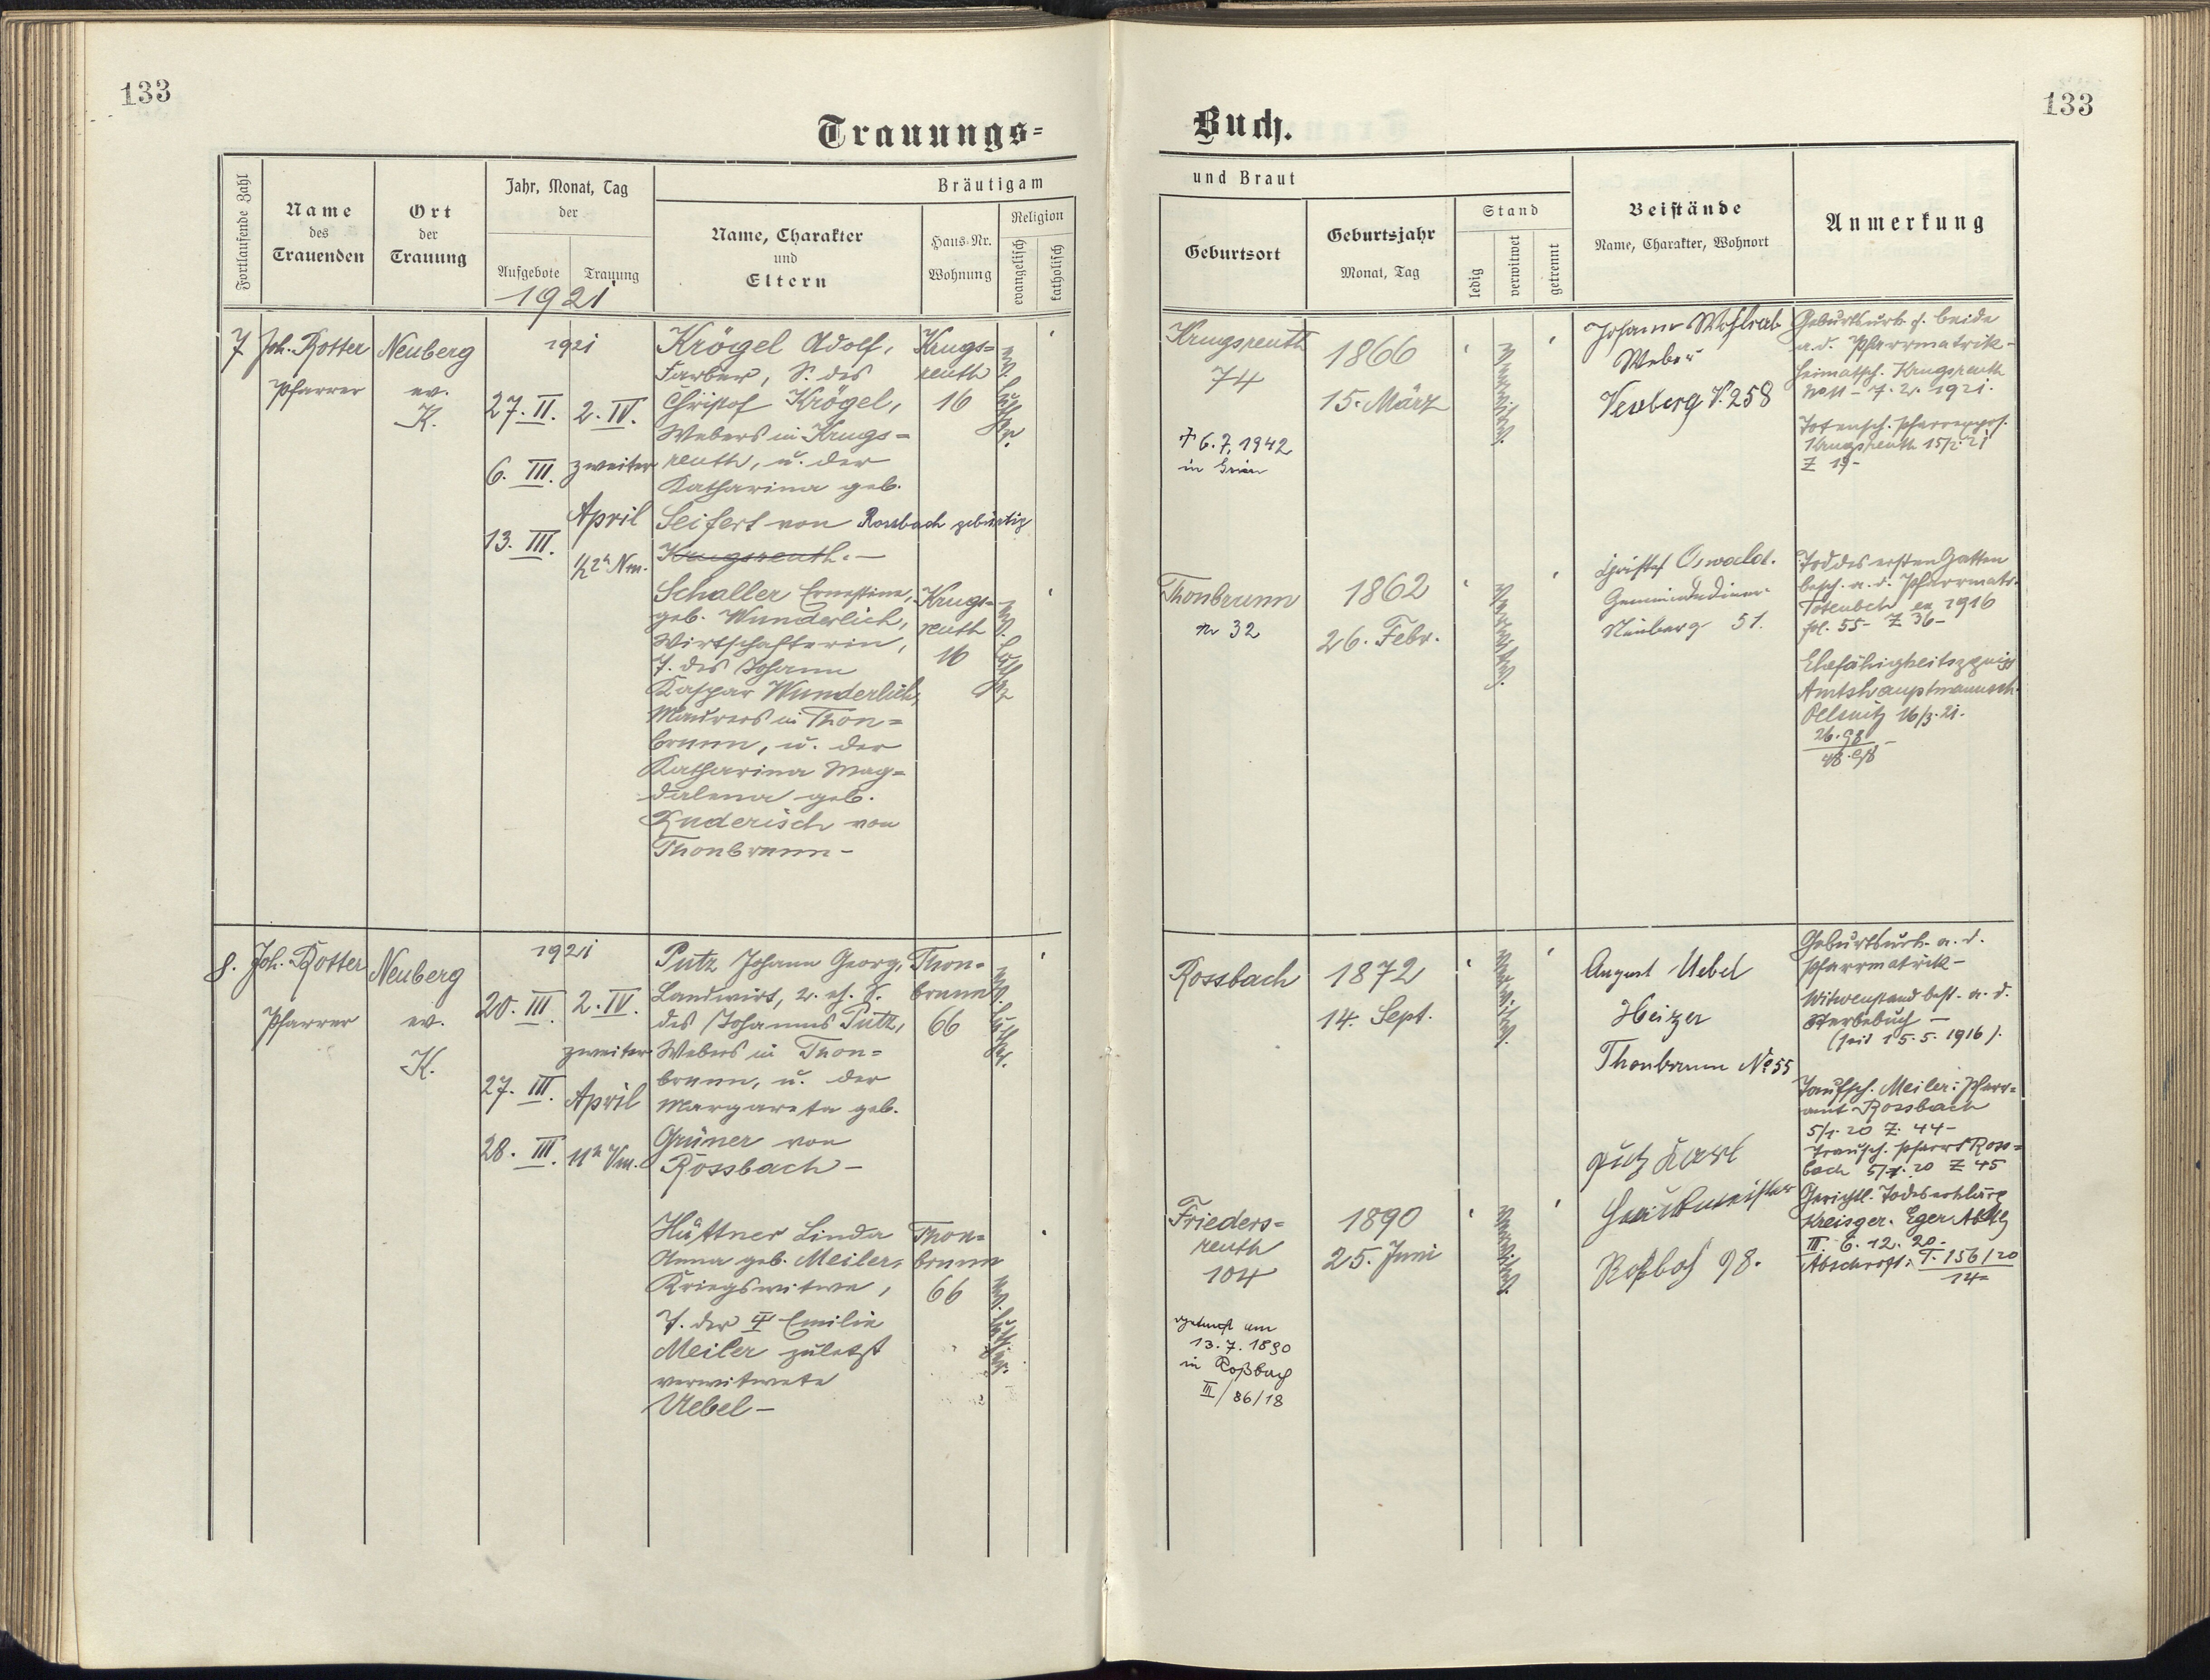 133
133
Trauungs=
Buch.
Fortlaufende Zahl
Name
des
Trauenden
Ort
der
Trauung
Jahr, Monat, Tag
der
Aufgebote
Trauung
1921
Bräutigam
Name, Charakter
und
Eltern
Haus-Nr.
Wohnung
Religion
evangelisch
katholisch
und Braut
Geburtsort
Geburtsjahr
Monat, Tag
Stand
ledig
verwitwet
getrennt
Beistände
Name, Charakter, Wohnort
Anmerkung
7
Joh. Rotter
Pfarrer
Neuberg
ev.
K.
1921
27. II.
6. III.
13. III.
2. IV.
zweiter
April
1/2 2h Nm.
Krögel Adolf,
Färber, S. des
Christof Krögel,
Webers in Krugs=
reuth, u. der
Katharina geb.
Seifert von Rossbach gebürtig
Krugsreuth.-
Krugs=
reuth
16
ev. luther.
Krugsreuth
74
† 6.7.1942
in
1866
15. März
verwitw.
Johann Wohlrab
Weber
Neuberg N. 258
Geburtsurk. f. beide
a.d. Pfarrmatrik-
Heimatsch. Krugsreuth
No 11 - 7. 2. 1921.
Totensch.
Krugsreuth 15/2. 21
Z 19-
Schaller Ernestine,
geb. Wunderlich,
Wirtschafterin,
T. des Johann
Kaspar Wunderlich,
Maurers in Thon=
brunn, u. der
Katharina Mag=
dalena geb.
Künderisch von
Thonbrunn-
Krugs=
reuth
16
ev. luther
Thonbrunn
Nr 32
1862
26. Febr.
verwitw.
Christof Oswald.
Gemeindediener
Neuberg 51.
Tod des ersten Gatten
besch. a. d. Pfarrmatr.
Totenbch ex 1916
fol. 55- Z 36-
Ehefähigkeitszeugn
Amtshauptmannsch.
Oelsnitz 16/3. 21.
8.
Joh. Rotter
Pfarrer
Neuberg
ev.
K.
1921
20. III.
27. III.
28. III.
2. IV.
zweiter
April
11h Vm.
Putz Johann Georg,
Landwirt, 2. eh. S.
des Johann Putz,
Webers in Thon=
brunn, u. der
Margareta geb.
Grüner von
Rossbach-
Thon=
brunn
66
ev. luther.
Rossbach
1872
14. Sept.
verwitw.
August Uebel
Heizer
Thonbrunn No 55
Geburtsurk. a. d.
Pfarrmatrik-
Witwenstand best. a. d.
Sterbebuch -
(seit 15. 5. 1916).
Hüttner Linda
Anna geb. Meiler,
Kriegswitwe,
T. der Emilie
Meiler zuletzt
verwitwete
Uebel-
Thon=
brunn
66
ev. luther.
Frieders=
reuth
104
getauft am
13. 7. 1890
in Roßbach
III/86/18
1890
25. Juni
verwitw.
Putz Karl
Roßbach 98.
Taufsch. Meiler: Pfarr=
amt Rossbach
5/1. 20 Z. 44-
Trausch. Pfarramt Ross=
bach 5/1. 20 Z 45
Gerichtl. Todeserklärg
Kreisger. Eger Abtlg
III. 6. 12. 20-
Abschrift: T. 156/20
14-